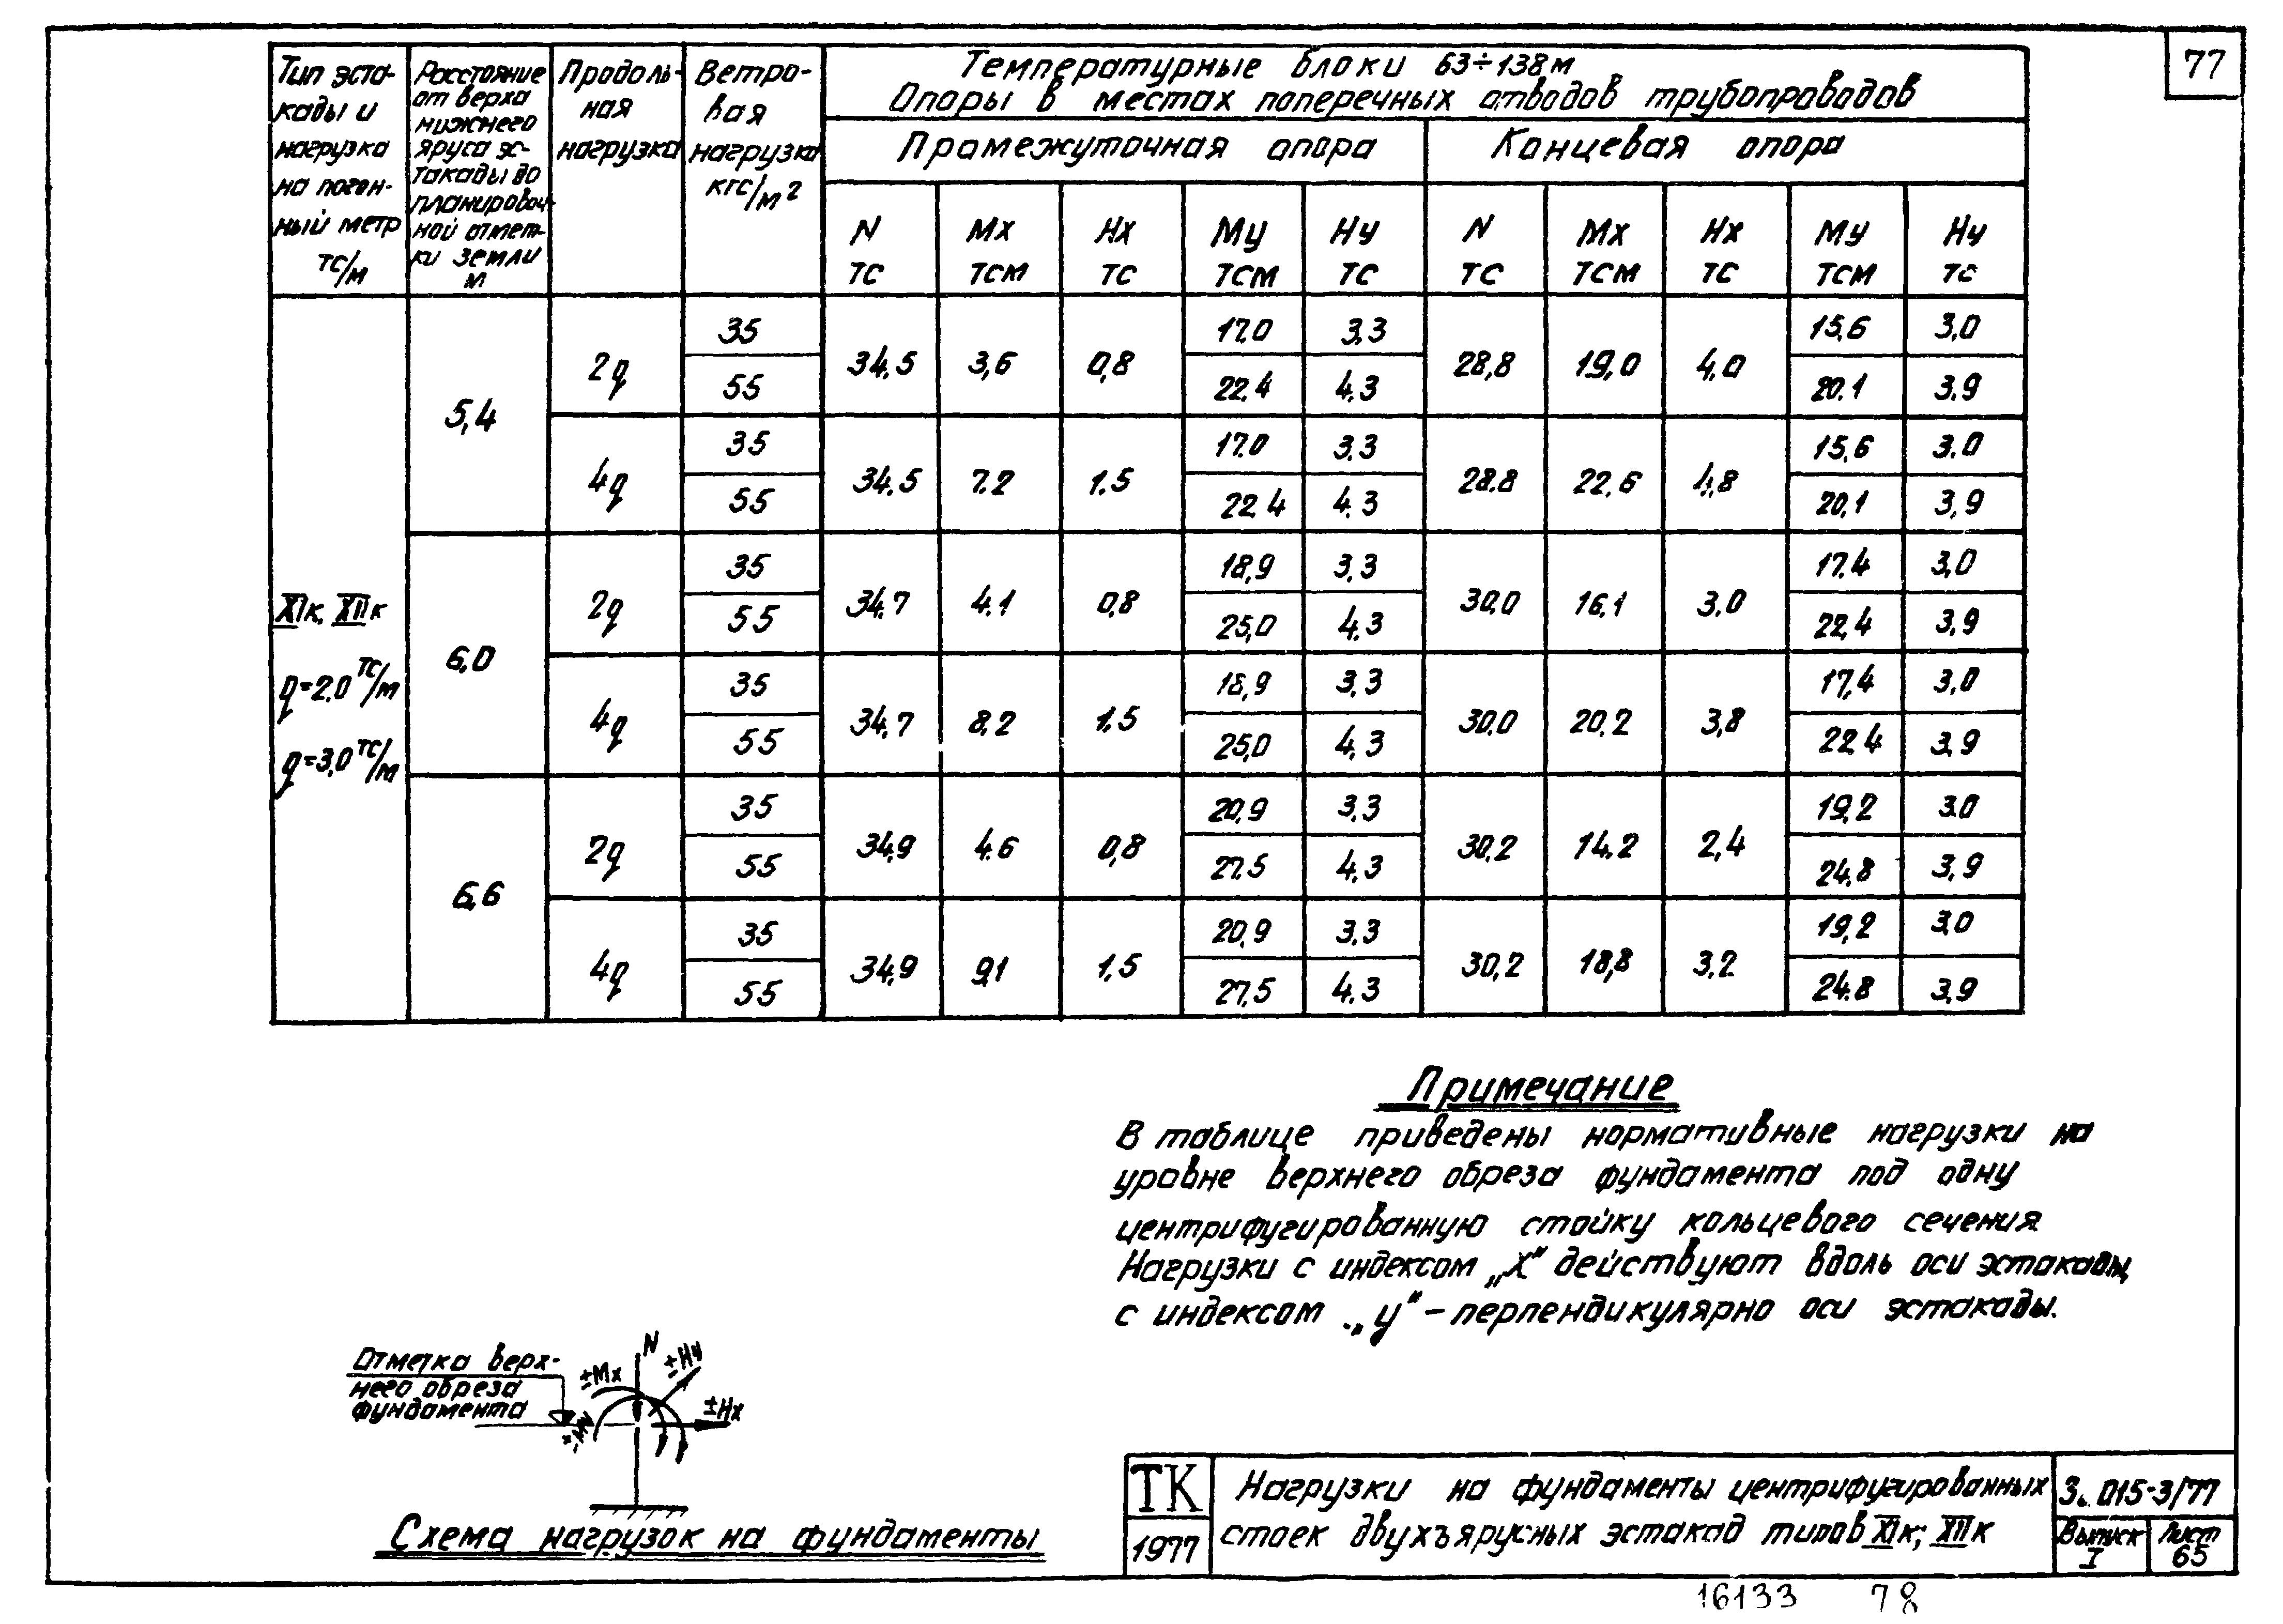 77
Тип эста-
кады и
нагрузка
на погон-
ный метр
тс/м
Расстояние
от верха
нижнего
яруса эс-
такады до
планировоч-
ной отмет-
ки земли
м
Продоль-
ная
нагрузка
Ветро-
вая
нагрузка
кгс/м²
Температурные блоки 63÷138м
Опоры в местах поперечных отводов трубопроводов
Промежуточная опора Концевая опора
N Мх Нх Му Ну N Мх Нх Му Ну
тс тсм тс тсм тс тс тсм тс тсм тс
XIк, XIIк
q=2,0 тс/м
q=3,0 тс/м
5,4 2q 35 34.5 3,6 0,8 17.0 3,3 28,8 19,0 4,0 15,6 3,0
55 22.4 4.3 20.1 3,9
4q 35 34.5 7.2 1.5 17.0 3.3 28.8 22.6 4,8 15,6 3.0
55 22.4 4.3 20,1 3,9
6,0 2q 35 34.7 4.1 0,8 18,9 3,3 30,0 16,1 3,0 17.4 3,0
55 25,0 4.3 22,4 3,9
4q 35 34.7 8,2 1,5 18,9 3,3 30.0 20,2 3,8 17,4 3,0
55 25,0 4.3 22.4 3,9
6,6 2q 35 34,9 4.6 0,8 20,9 3,3 30,2 14.2 2,4 19,2 3.0
55 27.5 4.3 24,8 3,9
4q 35 34,9 9,1 1,5 20,9 3,3 30,2 18,8 3,2 19,2 3,0
55 27,5 4.3 24.8 3,9
Примечание
В таблице приведены нормативные нагрузки на
уровне верхнего обреза фундамента под одну
центрифугированную стойку кольцевого сечения
Нагрузки с индексом „х" действуют вдоль оси эстакады,
с индексом „у" – перпендикулярно оси эстакады.
Отметка верх-
него обреза
фундамента
±Мх
N
±Ну
±Нх
±Му
Схема нагрузок на фундаменты
ТК
1977
Нагрузки на фундаменты центрифугированных
стоек двухъярусных эстакад типов XIк; XIIк
3.015-3/77
Выпуск
I
Лист
65
16133 78